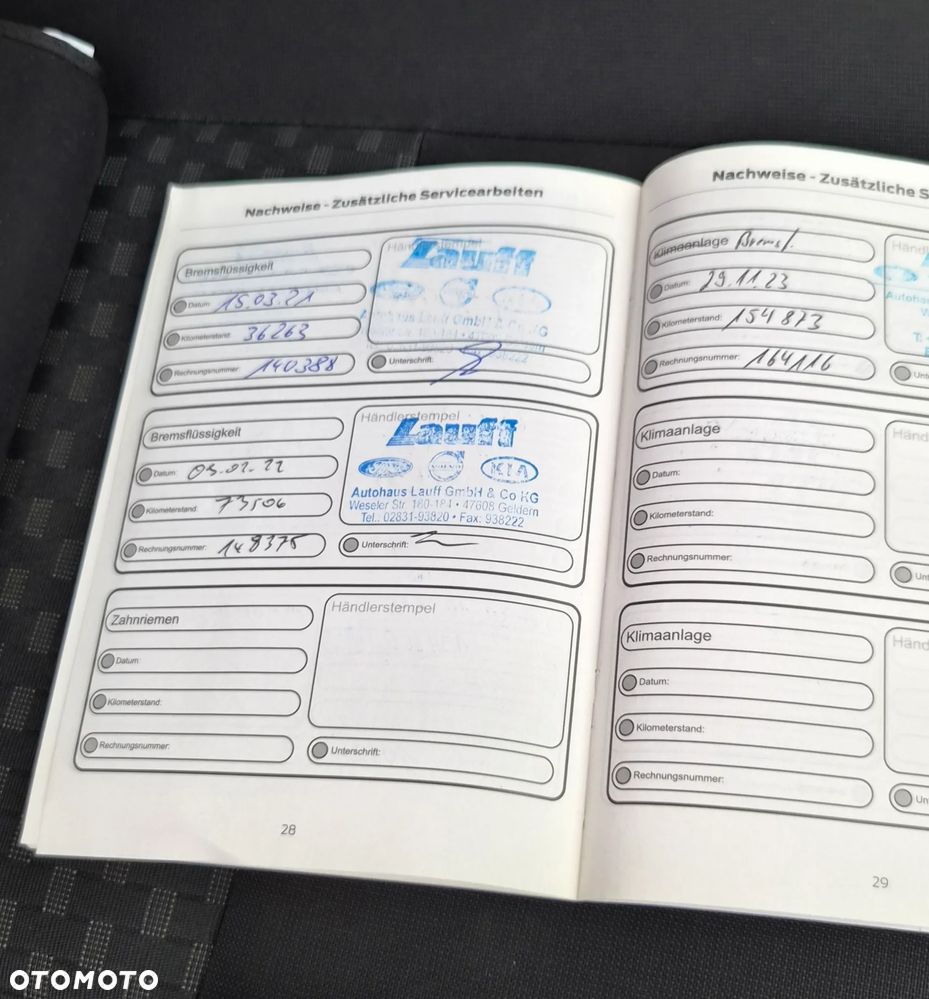 Nachweise - Zusätzliche Servicearbeiten
Bremsflüssigkeit
Datum: 15.03.21
Kilometerstand: 36263
Rechnungsnummer: 140388
Händlerstempel
Lauff
Autohaus Lauff GmbH & Co KG
Unterschrift:
Bremsflüssigkeit
Datum:
Kilometerstand: 73506
Rechnungsnummer: 148375
Händlerstempel
Lauff
Ford VOLVO KIA
Autohaus Lauff GmbH & Co KG
Weseler Str. 180-184 • 47608 Geldern
Tel.: 02831-93820 • Fax: 938222
Unterschrift:
Zahnriemen
Datum:
Kilometerstand:
Rechnungsnummer:
Händlerstempel
Unterschrift:
28
Nachweise - Zusätzliche S
Klimaanlage Bremsf.
Datum: 29.11.23
Kilometerstand: 154873
Rechnungsnummer: 164116
Händ
Autohaus
Unt
Klimaanlage
Datum:
Kilometerstand:
Rechnungsnummer:
Händ
Unt
Klimaanlage
Datum:
Kilometerstand:
Rechnungsnummer:
Händ
Un
29
OTOMOTO